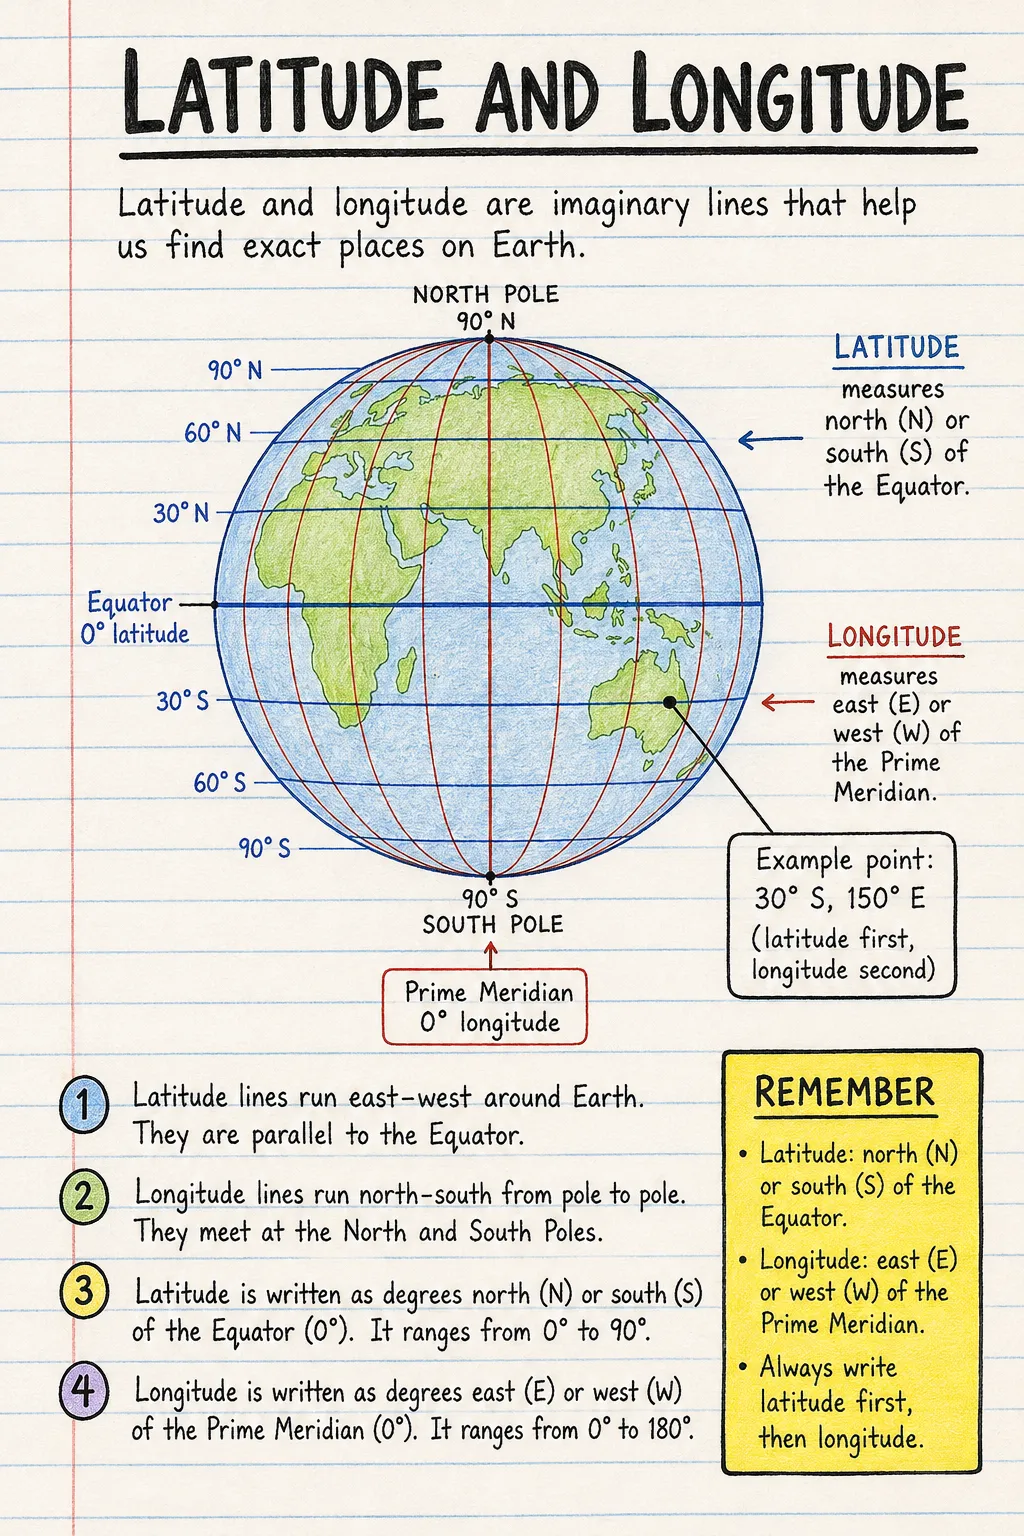 LATITUDE AND LONGITUDE
Latitude and longitude are imaginary lines that help
us find exact places on Earth.
NORTH POLE
90° N
90° N
60° N
30° N
Equator
0° latitude
30° S
60° S
90° S
90° S
SOUTH POLE
Prime Meridian
0° longitude
LATITUDE
measures
north (N) or
south (S) of
the Equator.
LONGITUDE
measures
east (E) or
west (W) of
the Prime
Meridian.
Example point:
30° S, 150° E
(latitude first,
longitude second)
1
Latitude lines run east-west around Earth.
They are parallel to the Equator.
2
Longitude lines run north-south from pole to pole.
They meet at the North and South Poles.
3
Latitude is written as degrees north (N) or south (S)
of the Equator (0°). It ranges from 0° to 90°.
4
Longitude is written as degrees east (E) or west (W)
of the Prime Meridian (0°). It ranges from 0° to 180°.
REMEMBER
• Latitude: north (N)
or south (S) of the
Equator.
• Longitude: east (E)
or west (W) of the
Prime Meridian.
• Always write
latitude first,
then longitude.